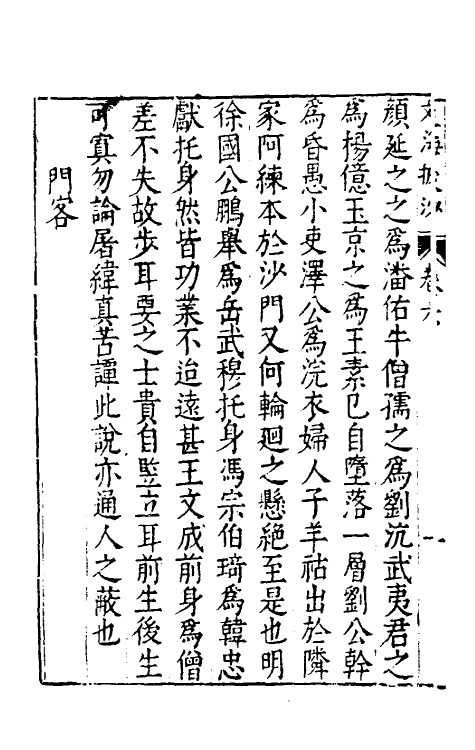 文海披沙 卷六 一
顔延之之爲潘佑牛僧孺之爲劉沆武夷君之
爲楊億王京之爲王素已自墮落一層劉公幹
爲昏愚小吏澤公爲浣衣婦人子羊祜出於隣
家阿練本於沙門又何輪廻之懸絶至是也明
徐國公鵬舉爲岳武穆托身馮宗伯琦爲韓忠
獻托身然皆功業不迨遠甚王文成前身爲僧
差不失故步耳要之士貴自竪立耳前生後生
可寘勿論屠緯真苦譚此說亦通人之蔽也
門客